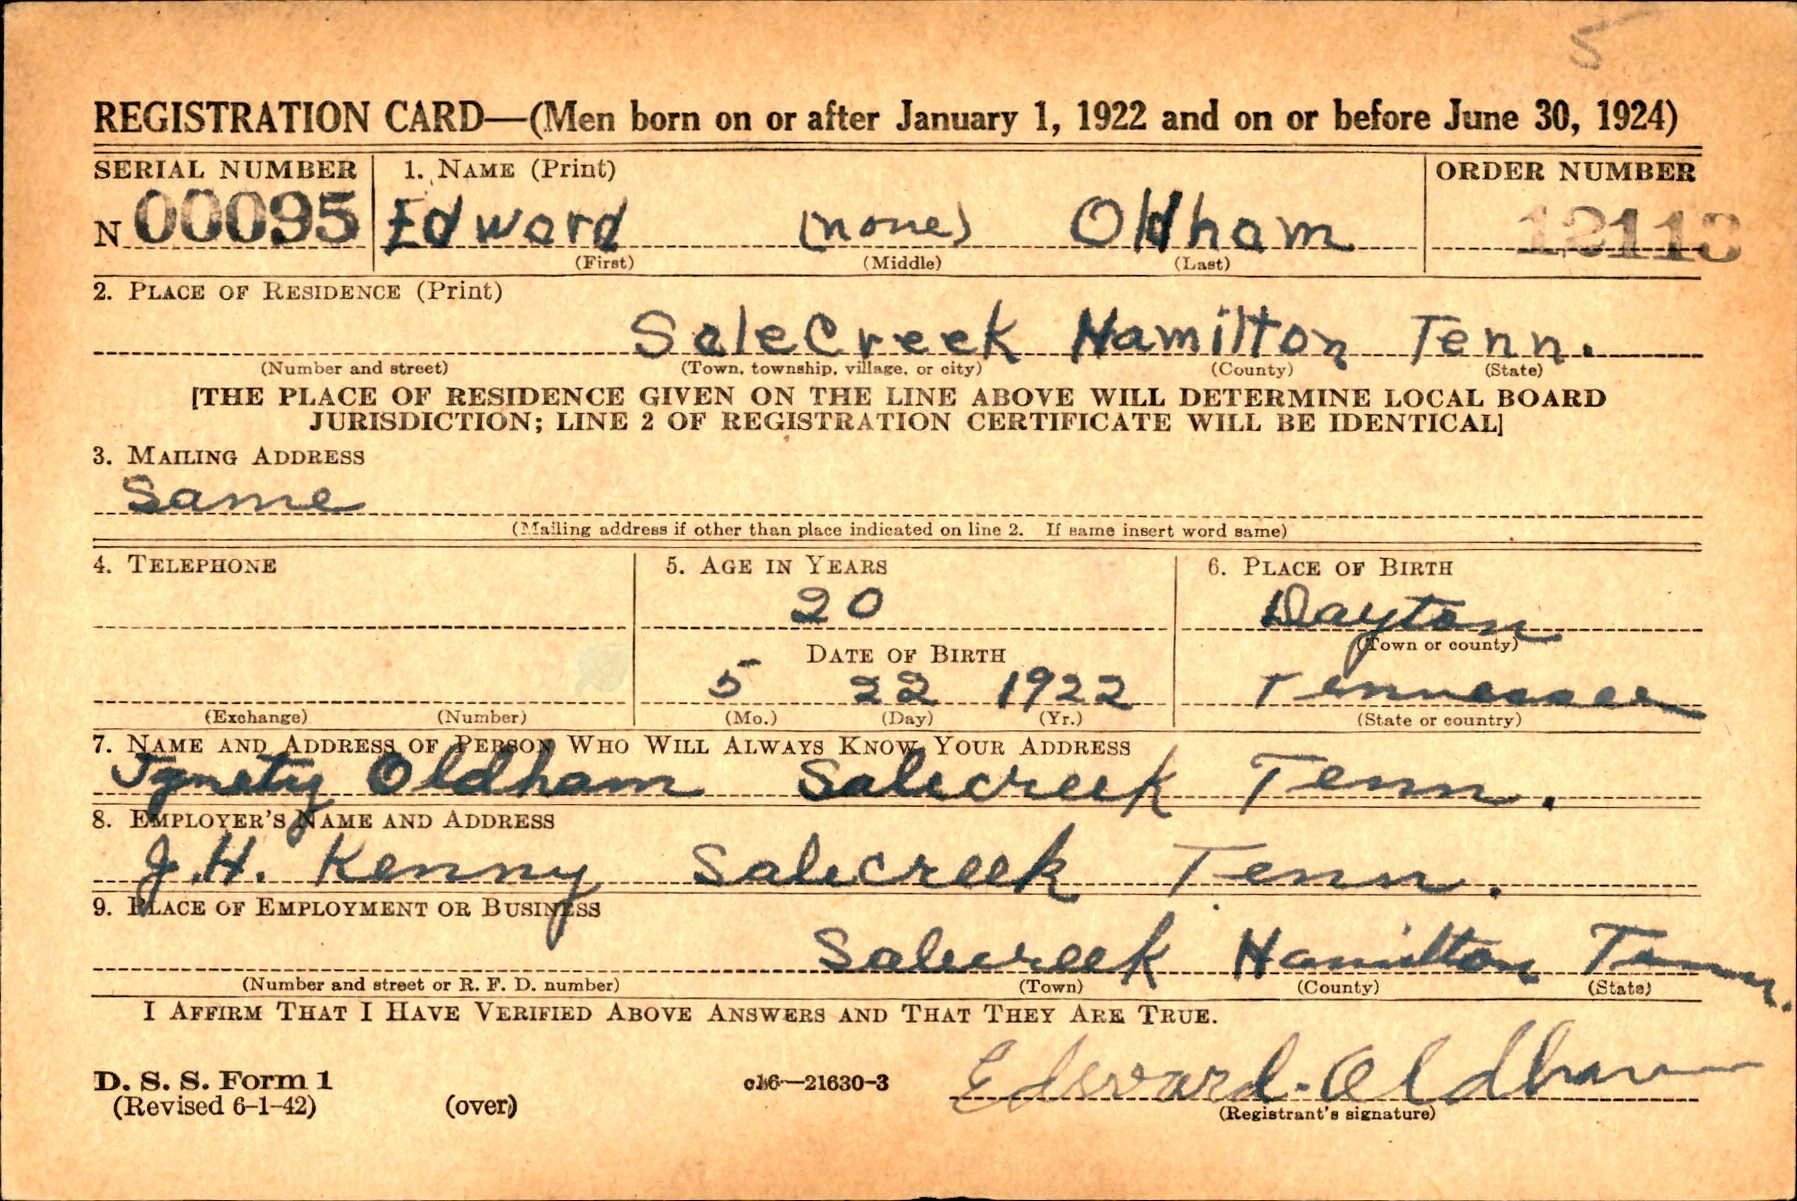 5
REGISTRATION CARD—(Men born on or after January 1, 1922 and on or before June 30, 1924)
SERIAL NUMBER 1. NAME (Print) ORDER NUMBER
N 00095 Edward (none) Oldham
(First) (Middle) (Last)
2. PLACE OF RESIDENCE (Print)
SaleCreek Hamilton Tenn.
(Number and street) (Town, township, village, or city) (County) (State)
[THE PLACE OF RESIDENCE GIVEN ON THE LINE ABOVE WILL DETERMINE LOCAL BOARD
JURISDICTION; LINE 2 OF REGISTRATION CERTIFICATE WILL BE IDENTICAL]
3. MAILING ADDRESS
Same
(Mailing address if other than place indicated on line 2. If same insert word same)
4. TELEPHONE 5. AGE IN YEARS 6. PLACE OF BIRTH
20 Dayton
DATE OF BIRTH (Town or county)
5 22 1922 Tennessee
(Exchange) (Number) (Mo.) (Day) (Yr.) (State or country)
7. NAME AND ADDRESS OF PERSON WHO WILL ALWAYS KNOW YOUR ADDRESS
Oldham Salecreek Tenn.
8. EMPLOYER'S NAME AND ADDRESS
J.H. Kenny Salecreek Tenn.
9. PLACE OF EMPLOYMENT OR BUSINESS
Salecreek Hamilton Tenn.
(Number and street or R. F. D. number) (Town) (County) (State)
I AFFIRM THAT I HAVE VERIFIED ABOVE ANSWERS AND THAT THEY ARE TRUE.
D. S. S. Form 1 16—21630-3 Edward Oldham
(Revised 6-1-42) (over) (Registrant's signature)